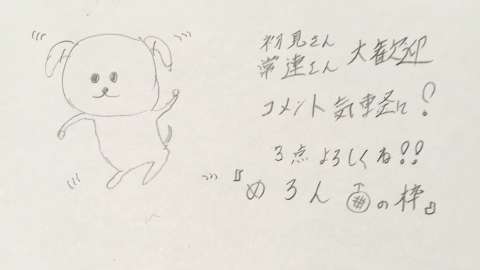 初見さん
常連さん 大歓迎
コメント気軽に!
3点よろしくね!!
『めろんの枠』